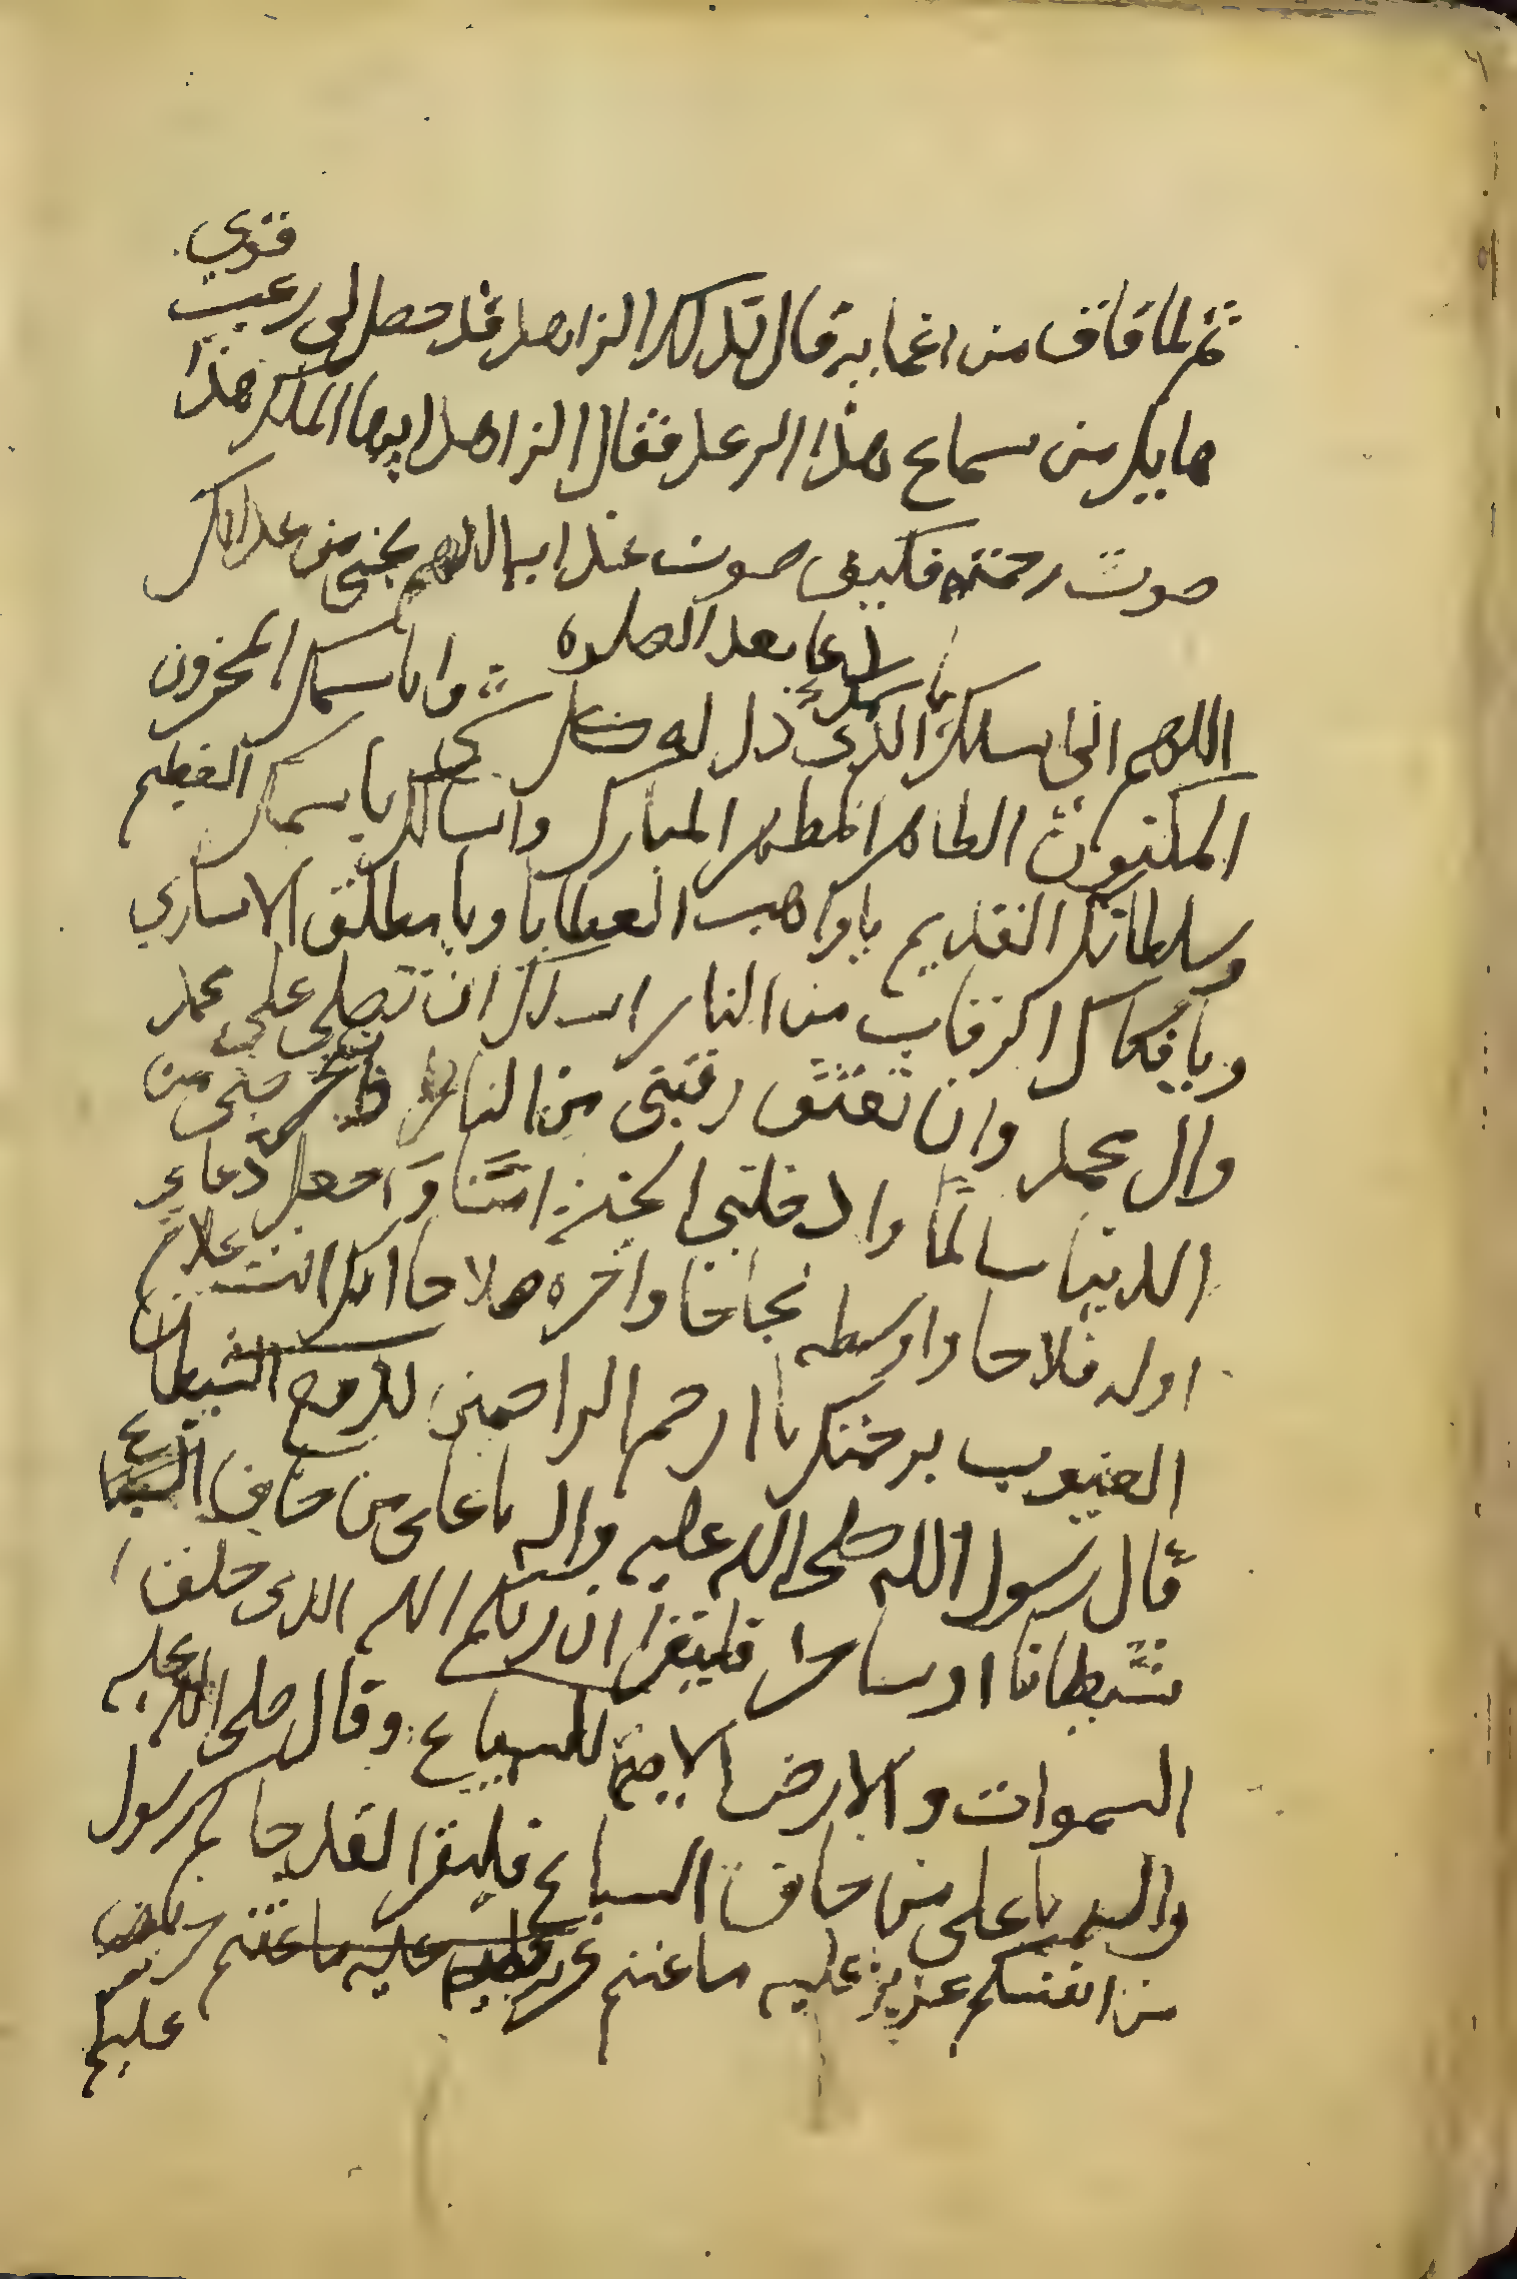 قوي
ثم لما فاق من اغمايه قال تدلك الزاهد قد حصل لى رعب
هايل من سماع هذا الرعد فقال الزاهد ايها الملك هذا
صوت رحمته فكيف صوت عذابه اللهم نجنى من عذابك
الدعا بعد الصلوه
اللهم انى اسلك باسمك الذى ذل له كل شى وباسمك المخزون
المكنون الطاهر المطهر المبارك واسالك باسمك العظيم
وسلطانك القديم يا واهب العطايا ويا مطلق الاسارى
ويا فكاك الرقاب من النار اسلك ان تصلى على محمد
وال محمد وان تعتق رقبتى من النار وتخرجنى من
الدنيا سالمًا وادخلنى الجنة امنا واجعل دعاى
اوله فلاحا واوسطه نجاحا واخره صلاحا انك انت علام
الغيوب برحمتك يا ارحم الراحمين لدفع الشيطان
قال رسول الله صلى الله عليه واله يا على من خاف
شيطانا او ساحرا فليقرا ان ربكم الله الذى خلق
السموات والارض الايه للسباع وقال صلى الله عليه
واله يا على من خاف السباع فليقرا لقد جاكم رسول
من انفسكم عزيز عليه ما عنتم عزيز عليه ما عنتم حريص
عليكم